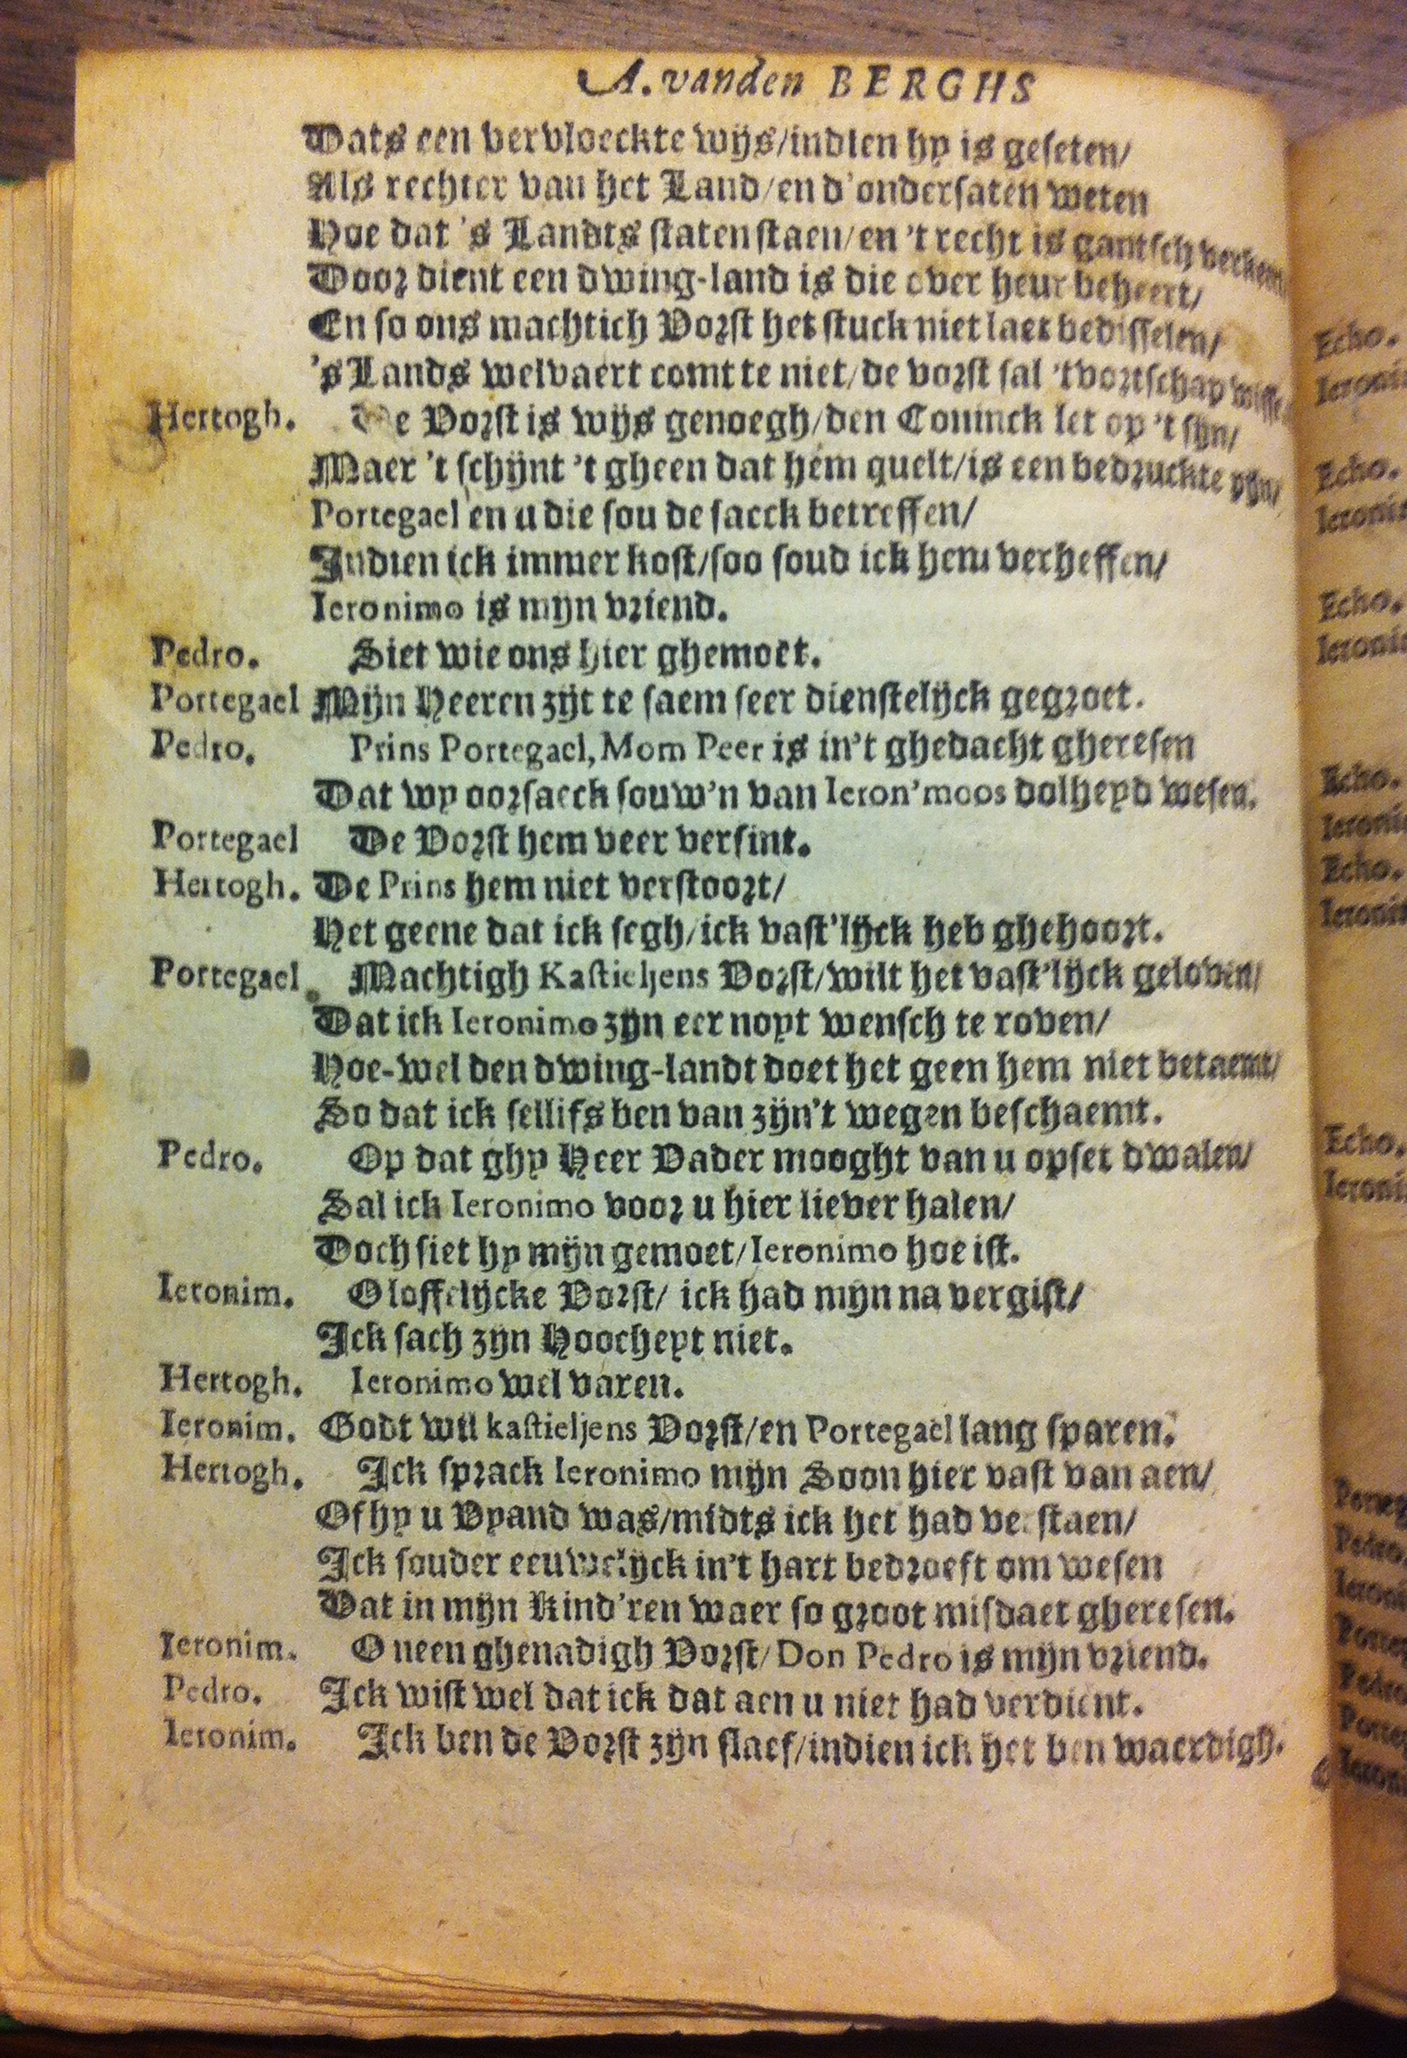 A. vanden BERGHS
Dats een vervloeckte wijs/indien hy is geseten/
Als rechter van het Land/en d'ondersaten weten
Hoe dat 's Landts staten staen/en 't recht is gantsch verkeert
Door dient een dwing-land is die over heur beheert/
En so ons machtich Vorst het stuck niet laet bedisselen/
's Lands welvaert comt te niet/de vorst sal 't vortschap
Hertogh. De Vorst is wijs genoegh/den Coninck let op 't sijn/
Maer 't schijnt 't gheen dat hem quelt/is een bedruckte pijn/
Portegael en u die sou de saeck betreffen/
Indien ick immer kost/soo soud ick hem verheffen/
Ieronimo is mijn vriend.
Pedro. Siet wie ons hier ghemoet.
Portegael Mijn Heeren zijt te saem seer dienstelijck gegroet.
Pedro. Prins Portegael, Mom Peer is in't ghedacht gheresen
Dat wy oorsaeck souw'n van Ieron'moos dolheyd wesen.
Portegael De Vorst hem veer versint.
Hertogh. De Prins hem niet verstoort/
Het geene dat ick segh/ick vast'lijck heb ghehoort.
Portegael Machtigh Kastieljens Vorst/wilt het vast'lijck geloven/
Dat ick Ieronimo zijn eer noyt wensch te roven/
Hoe-wel den dwing-landt doet het geen hem niet betaemt/
So dat ick sellifs ben van zijn't wegen beschaemt.
Pedro. Op dat ghy Heer Vader mooght van u opset dwalen/
Sal ick Ieronimo voor u hier liever halen/
Doch siet hy mijn gemoet/Ieronimo hoe ist.
Ieronim. O loffelijcke Vorst/ ick had mijn na vergist/
Ick sach zijn Hoocheyt niet.
Hertogh. Ieronimo wel varen.
Ieronim. Godt wil kastieljens Vorst/en Portegael lang sparen.
Hertogh. Ick sprack Ieronimo mijn Soon hier vast van aen/
Of hy u Vyand was/midts ick het had verstaen/
Ick souder eeuwelijck in't hart bedroeft om wesen
Dat in mijn Kind'ren waer so groot misdaet gheresen.
Ieronim. O neen ghenadigh Vorst/Don Pedro is mijn vriend.
Pedro. Ick wist wel dat ick dat aen u niet had verdient.
Ieronim. Ick ben de Vorst zijn slaef/indien ick het ben waerdigh.
Echo.
Echo.
Echo.
Echo.
Echo.
Echo.